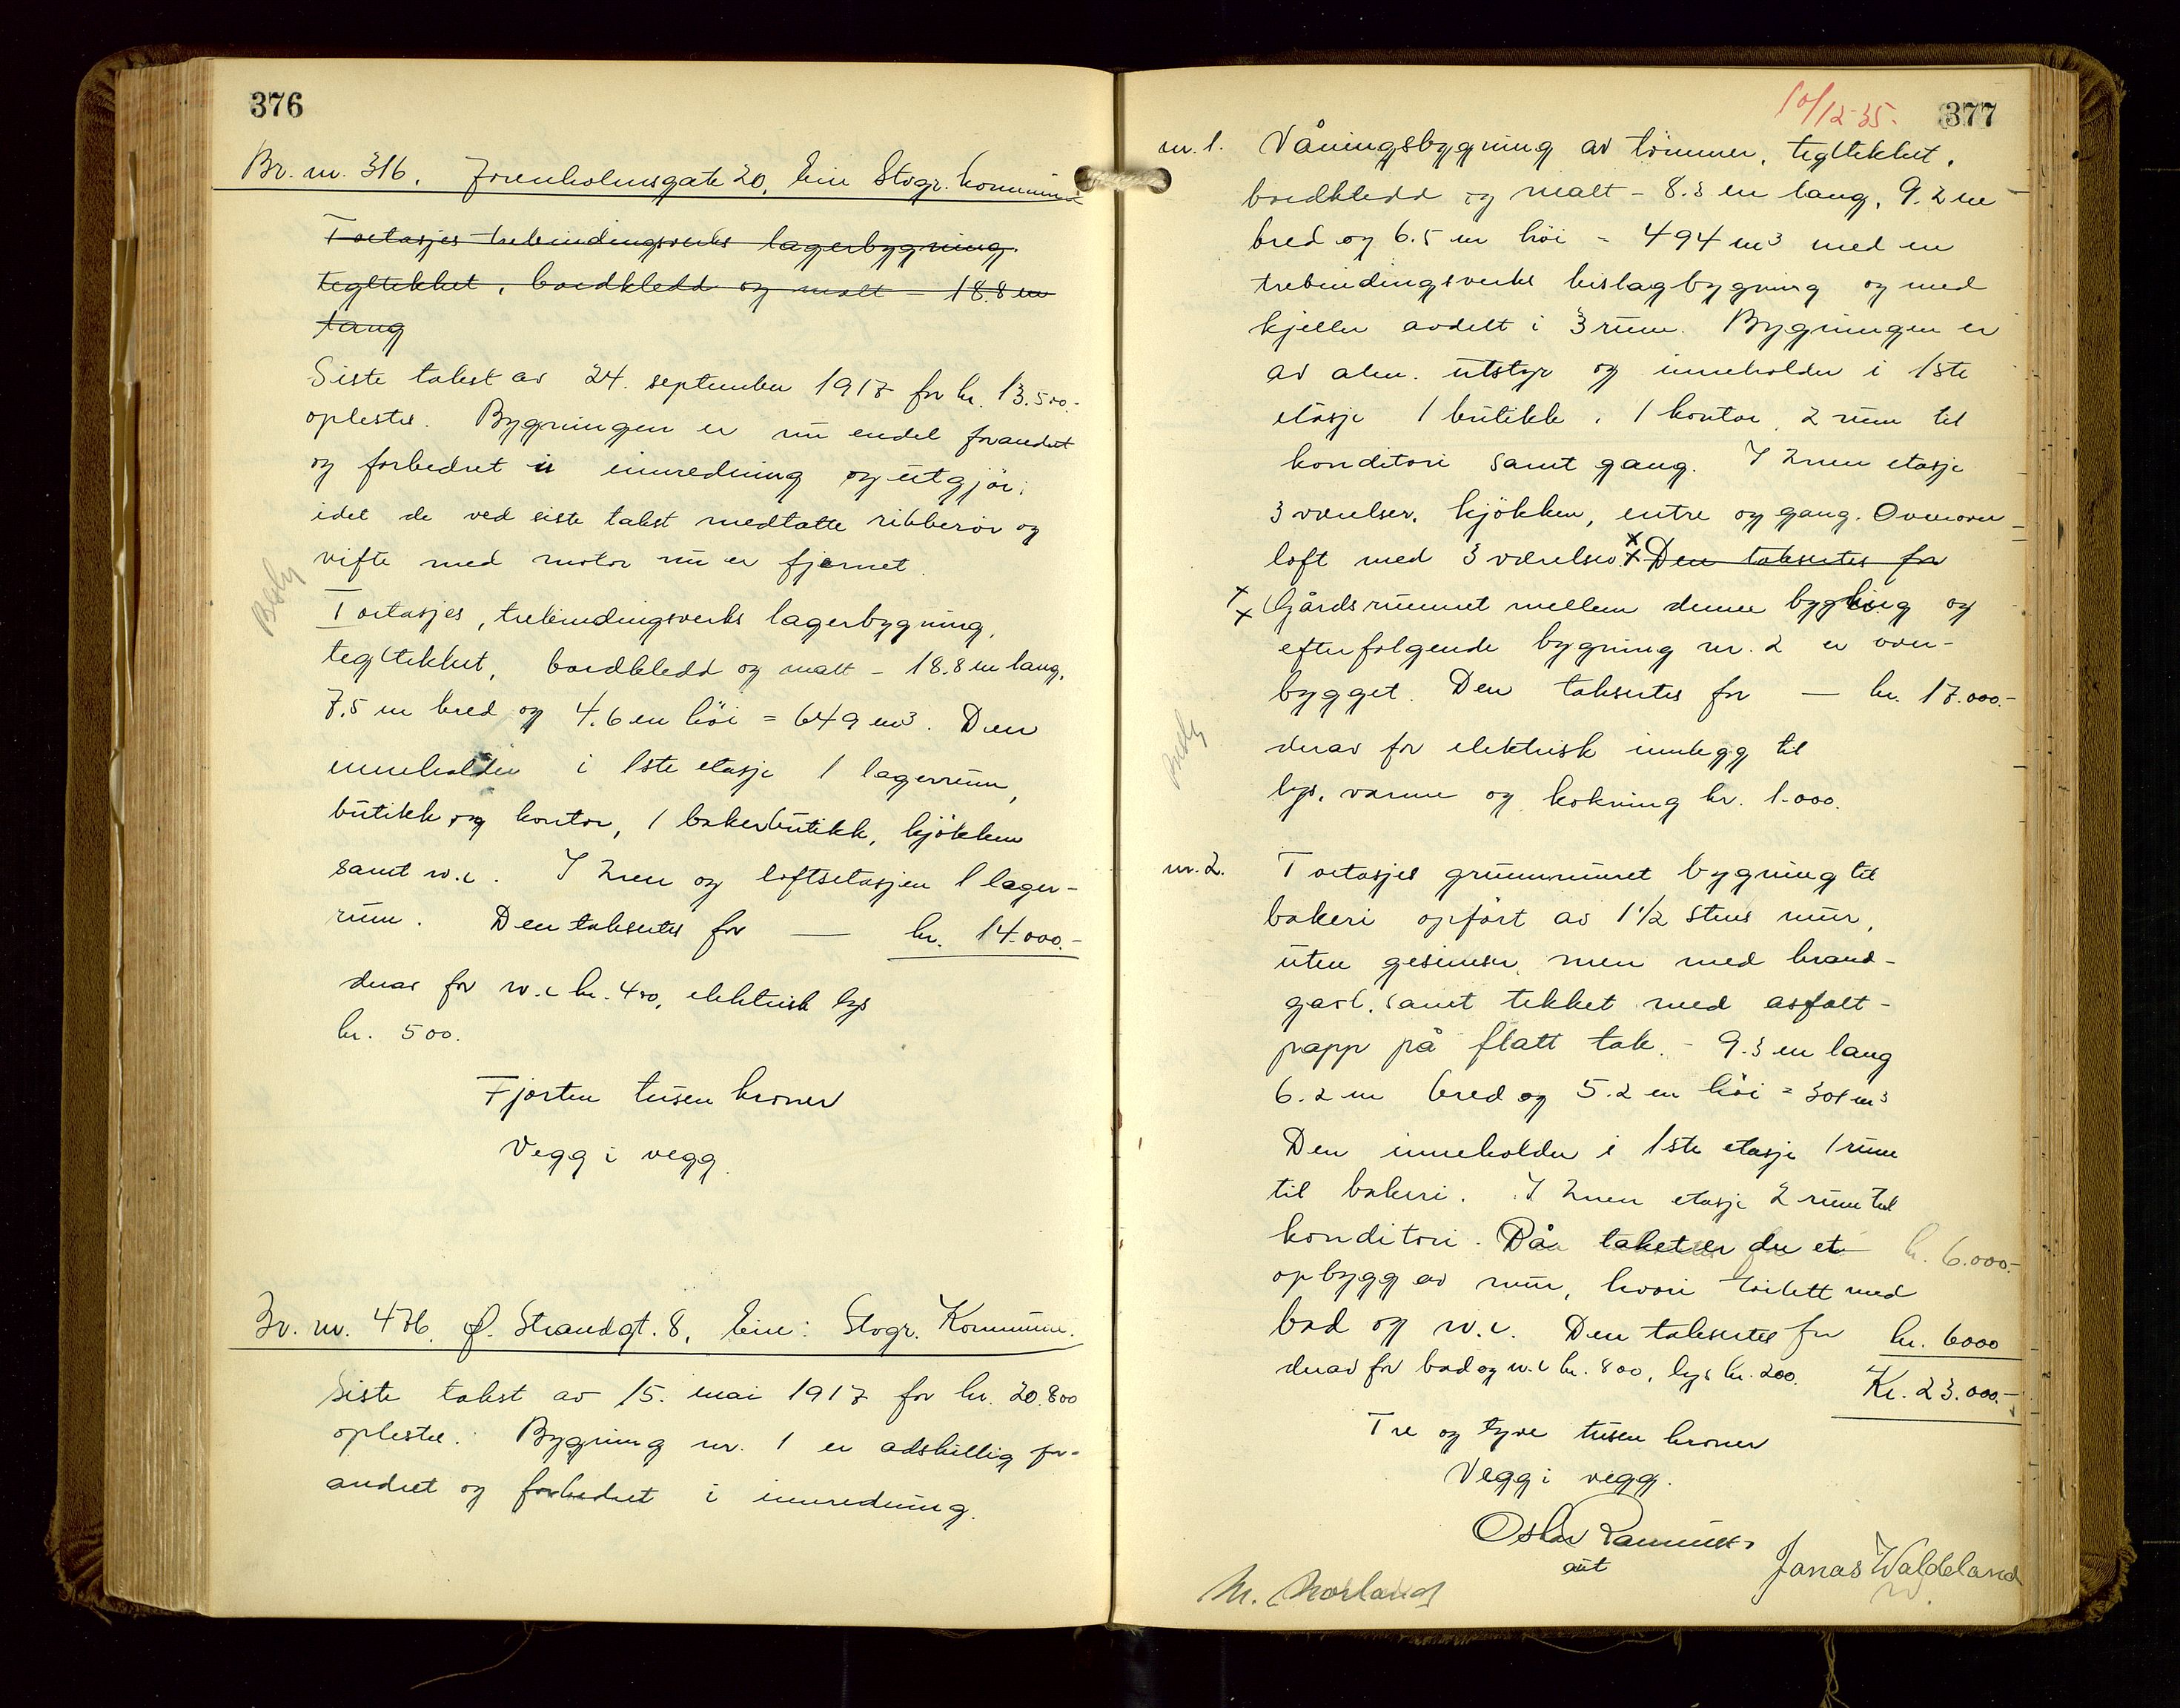 376
Br. nr. 316. Jorenholmsgate 20, Eier Stvgr. kommune
Toetasjes trebindingsverks lagerbygning.
tegltekket, bordkledd og malt - 18.8 m
lang
Siste takst av 24. september 1917 for kr. 13.500.-
oplestes. Bygningen er nu endel forandret
og forbedret i innredning og utgjør:
idet de ved siste takst medtatte ribberør og
vifte med motor nu er fjernet.
Toetasjes, trebindingsverks lagerbygning,
tegltekket, bordkledd og malt - 18.8 m lang,
7.5 m bred og 4.6 m höi = 649 m³. Den
inneholder i 1ste etasje 1 lagerrum,
butikk og kontor, 1 bakerbutikk, kjökken
samt w.c. I 2nen og loftsetasjen 1 lager-
rum. Den takseres for — kr. 14.000.-
derav for w.c kr. 400, elektrisk lys
kr. 500.
Fjorten tusen kroner
Vegg i vegg.
Br. nr. 476. Ø. Strandgt. 8, Eier: Stvgr. Kommune.
Siste takst av 15. mai 1917 for kr. 20.800
oplestes. Bygning nr. 1 er adskillig for-
andret og forbedret i innredning.
10/12-35. 377
nr. 1. Våningsbygning av tömmer, tegltekket,
bordkledd og malt - 8.3 m lang, 9.2 m
bred og 6.5 m höi = 494 m³ med en
trebindingsverks bislagbygning og med
kjeller avdelt i 3 rum. Bygningen er
av alm. utstyr og inneholder i 1ste
etasje 1 butikk, 1 kontor, 2 rum til
konditori samt gang. I 2nen etasje
3 værelser, kjökken, entre og gang. Ovenover
loft med 3 værelser. x x Den takseres for
x x Gårdsrummet mellem denne bygning og
efterfølgende bygning nr. 2 er over-
bygget. Den takseres for — kr. 17.000.-
derav for elektrisk innlegg til
lys, varme og kokning kr. 1.000.
nr. 2. Toetasjes grunnmuret bygning til
bakeri opfört av 1½ stens mur,
uten gesimser, men med brand-
gavl, samt tekket med asfalt-
papp på flatt tak. - 9.3 m lang
6.2 m bred og 5.2 m höi = 301 m³
Den inneholder i 1ste etasje 1 rum
til bakeri. I 2nen etasje 2 rum til
konditori. På taket er der et kr. 6.000.-
opbygg av mur, hvori toilett med
bad og w.c. Den takseres for kr. 6000
derav for bad og w.c kr. 800, lys kr. 200. Kr. 23.000.-
Tre og tyve tusen kroner
Vegg i vegg.
Oskar Rasmussen
M. Norland Jonas Waldeland